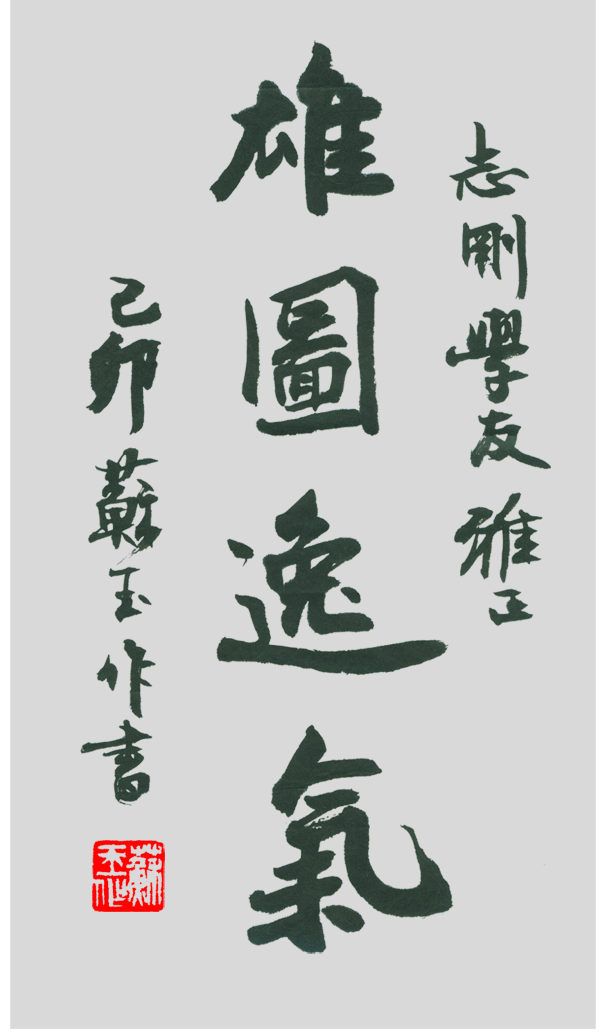 志剛學友雅正
雄圖逸氣
己卯蘇玉作書
蘇玉作